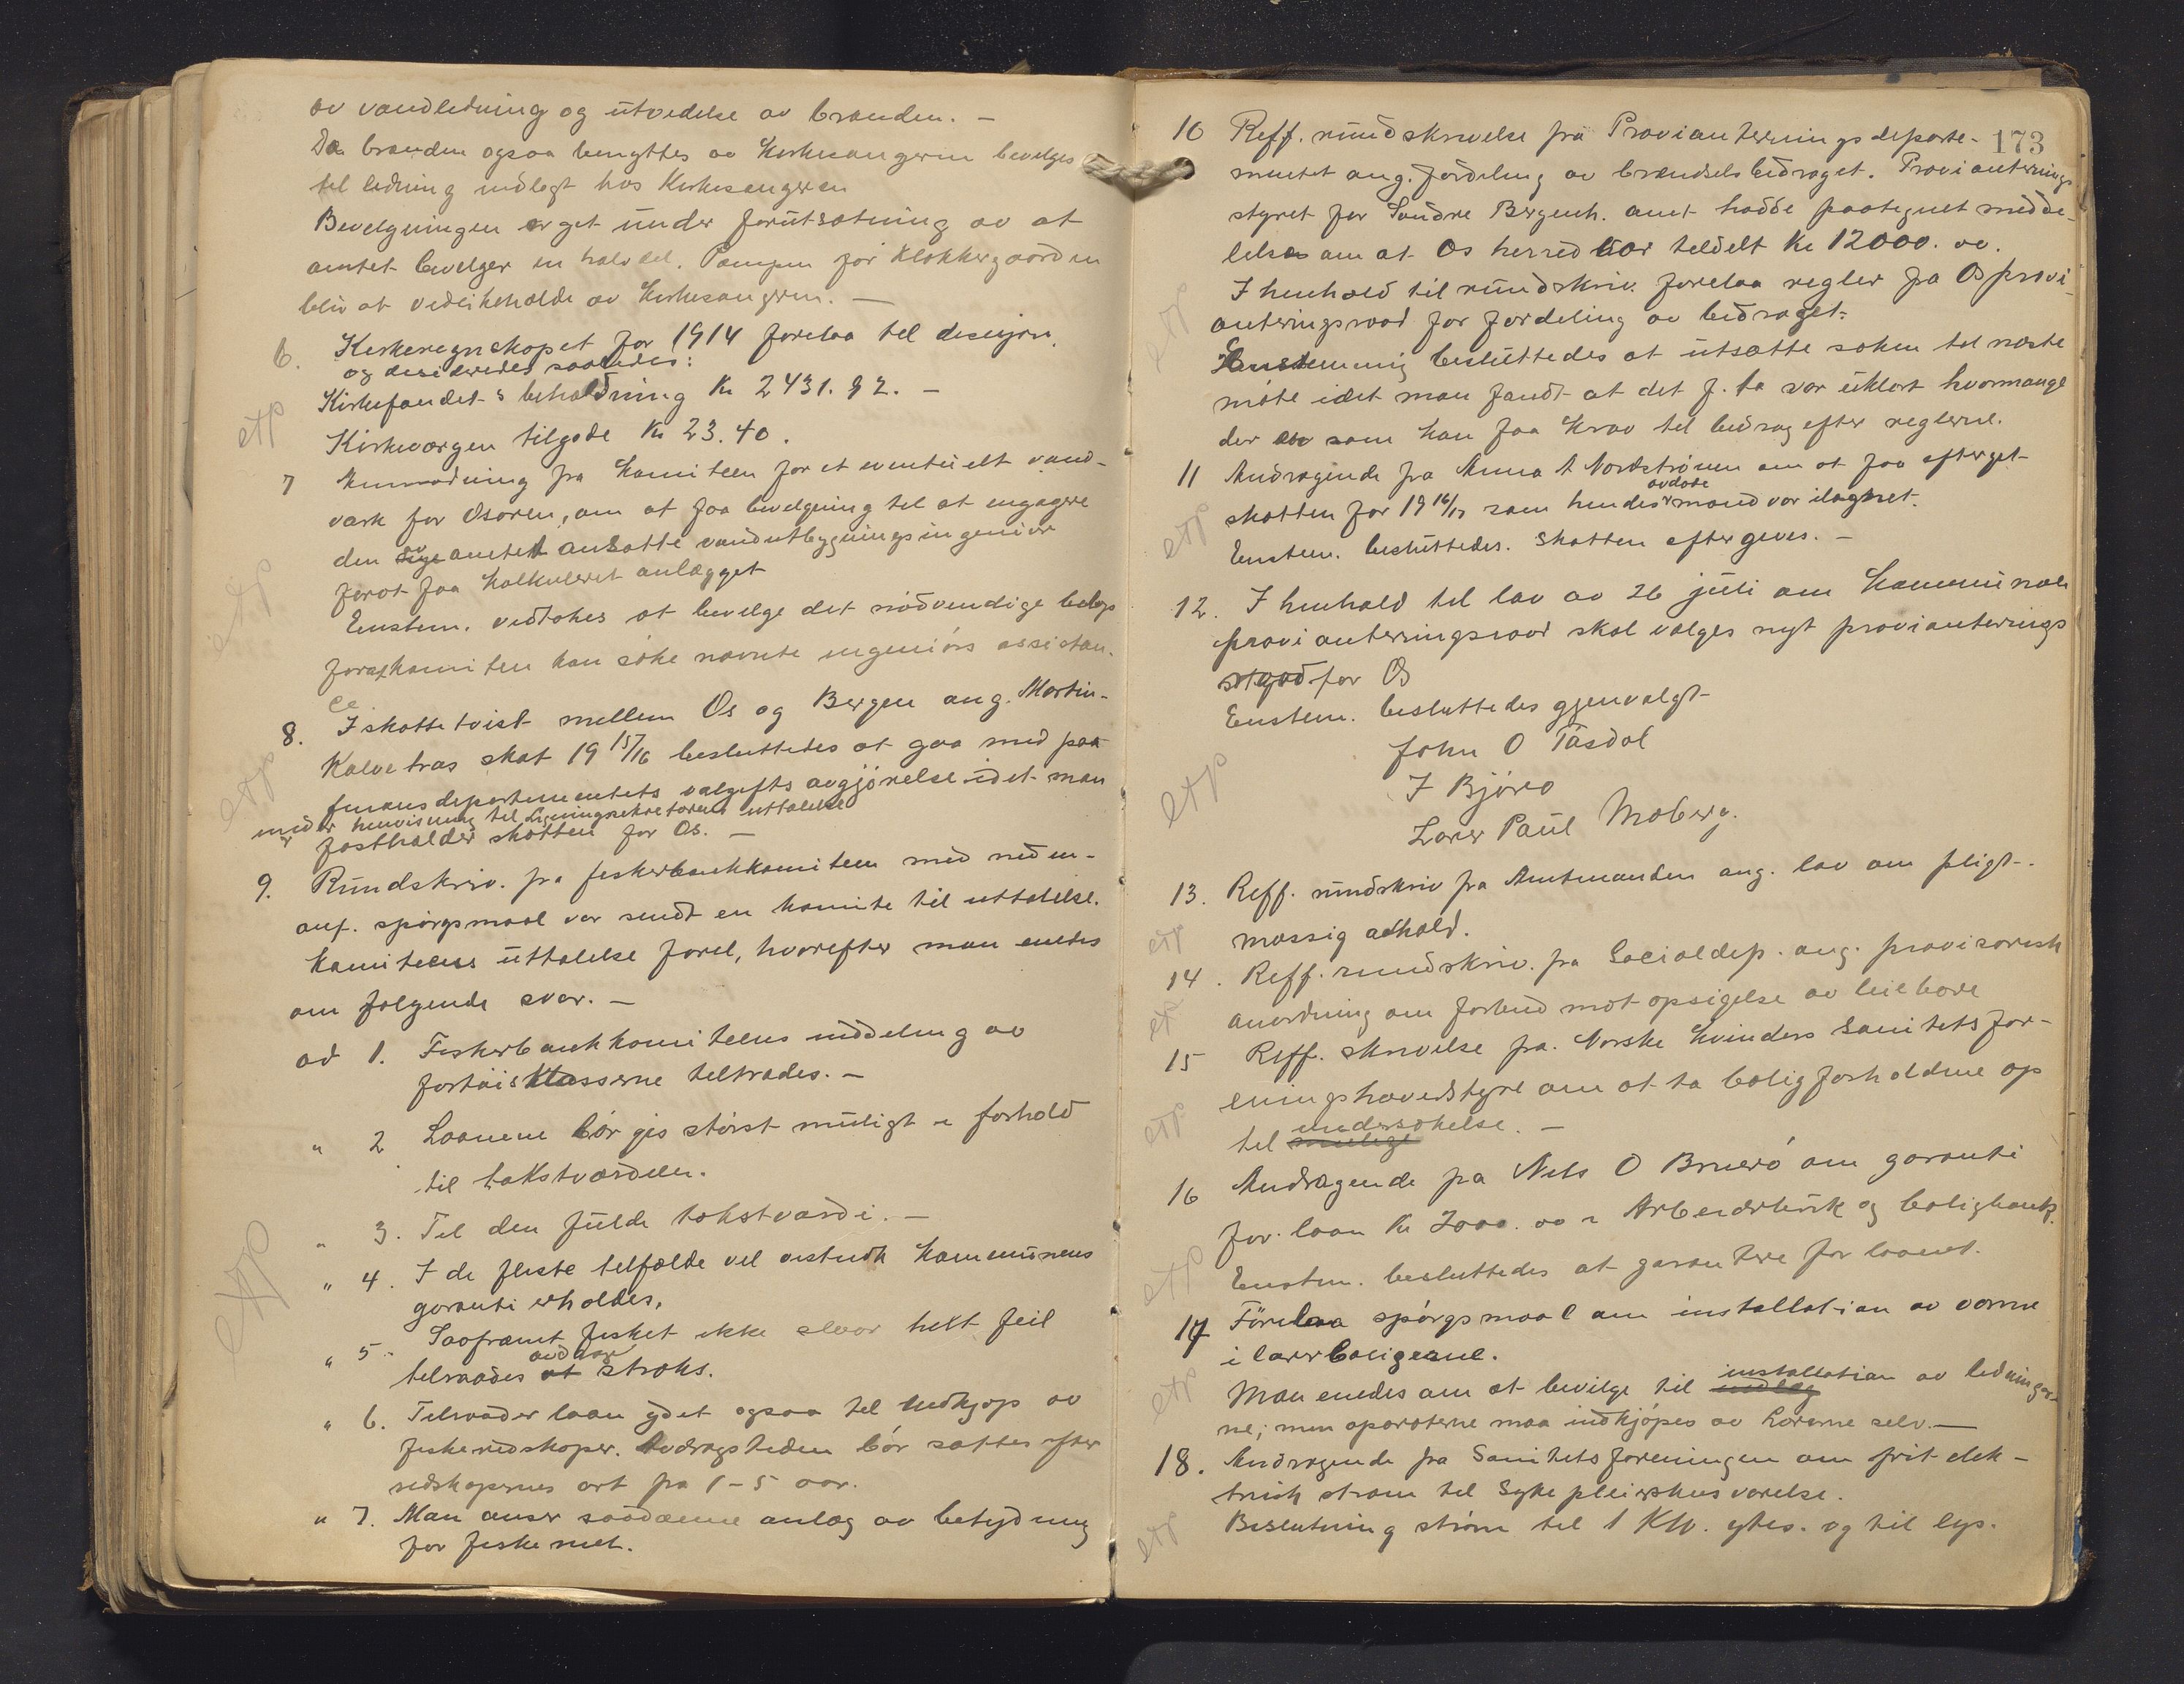 av vandledning og utvidelse av brønden. —
Da brønden ogsaa benyttes av Kirkesangeren bevilges
til ledning indlagt hos Kirkesangeren
Bevilgningen er git under forutsætning av at
amtet bevilger en halvdel. Pumpen for Klokkergaarden
blir at vedlikeholde av Kirkesangeren. —
6. Kirkeregnskapet for 1914 forelaa til desisjon.
og desideredes saaledes:
Kirkefondets beholdning Kr 2431.92. —
Kirkeværgen tilgode Kr 23.40.
7 Anmodning fra Komiteen for et eventuelt vand-
værk for Osøren, om at faa bevilgning til at engagere
den av amtet ansatte vandutbygningsingeniør
for at faa kalkuleret anlægget
Enstem. vedtokes at bevilge det nødvendige beløp
for at komiteen kan søke nævnte ingeniørs assistan-
ce
8. I skattetvist mellem Os og Bergen ang. Martin
Kalvetræs skat 19 15/16 besluttedes at gaa med paa
finansdepartementets valgifts avgjørelse idet man
under henvisning til Ligningssekretærens uttalelse
fastholder skatten for Os. —
9. Rundskriv. fra fiskerbankkomiteen med neden-
anf. spørgsmaal var sendt en komite til uttalelse.
Komiteens uttalelse forel, hvorefter man enedes
om følgende svar. —
ad 1. Fiskerbankkomiteens inddeling av
fartøisklasserne tiltrædes. —
" 2 Laanene bør gis størst muligt i forhold
til takstværdien.
" 3. Til den fulde takstværdi. —
" 4. I de fleste tilfælde vil antielig Kommunens
garanti erholdes.
" 5. Saafremt fisket ikke slaar helt feil
tilraades avdrag straks.
" 6. Tilraader laan ydet ogsaa til indkjøp av
fiskeredskaper. Avdragstiden bør sættes efter
redskapernes art fra 1–5 aar.
" 7. Man anser saadanne anlæg av betydning
for fiskeriet.
173
10 Reff. rundskrivelse fra Provianteringsdeparte-
mentet ang. fordeling av brændselsbidraget. Provianterings
styret for Søndre Bergenh. amt hadde paategnet medde-
lelse om at Os herred var tildelt Kr 12000.00.
I henhold til rundskriv. forelaa regler fra Os provi-
anteringsraad for fordeling av bidraget.
Enstemmig besluttedes at utsætte saken til næste
møte idet man fandt at det f. ta var uklart hvormange
der som kan faa krav til bidrag efter reglerne.
11 Andragende fra Anna A Nordstrønen om at faa eftergit
skatten for 19 16/17 som hendes avdøde mand var ilagnet.
Enstem. besluttedes. Skatten eftergives. —
12. I henhold til lov av 26 juli om Kommunale
provianteringsraad skal vælges nyt provianterings
raad for Os
Enstem. besluttedes gjenvalgt
John O Tøsdal
I Bjørø
Lærer Paul Moberg.
13. Reff. rundskriv fra Amtmanden ang. lov om pligt-
mæssig avhold.
14. Reff. rundskriv. fra Socialdep. ang. provisorisk
anordning om forbud mot opsigelse av leieboere
15 Reff. skrivelse fra Norske Kvinders Sanitetsfor-
enings hovedstyre om at ta boligforholdene op
til undersøkelse. —
16 Andragende fra Nils O Bruerø om garanti
for laan Kr 3000.00 i Arbeiderbruk og boligbank.
Enstem. besluttedes at garantere for laanet.
17 Forelaa spørgsmaal om installation av varme
i lærerboligerne.
Man enedes om at bevilge til installation av ledninger-
ne; men aparaterne maa indkjøpes av Lærerne selv. —
18. Andragende fra Sanitetsforeningen om frit elek-
trisk strøm til Sykepleierskens værelse.
Beslutning strøm til 1 KW. ytes. og til lys.
etp
etp
etp
etp
etp
etp
etp
etp
etp
etp
etp
etp
etp